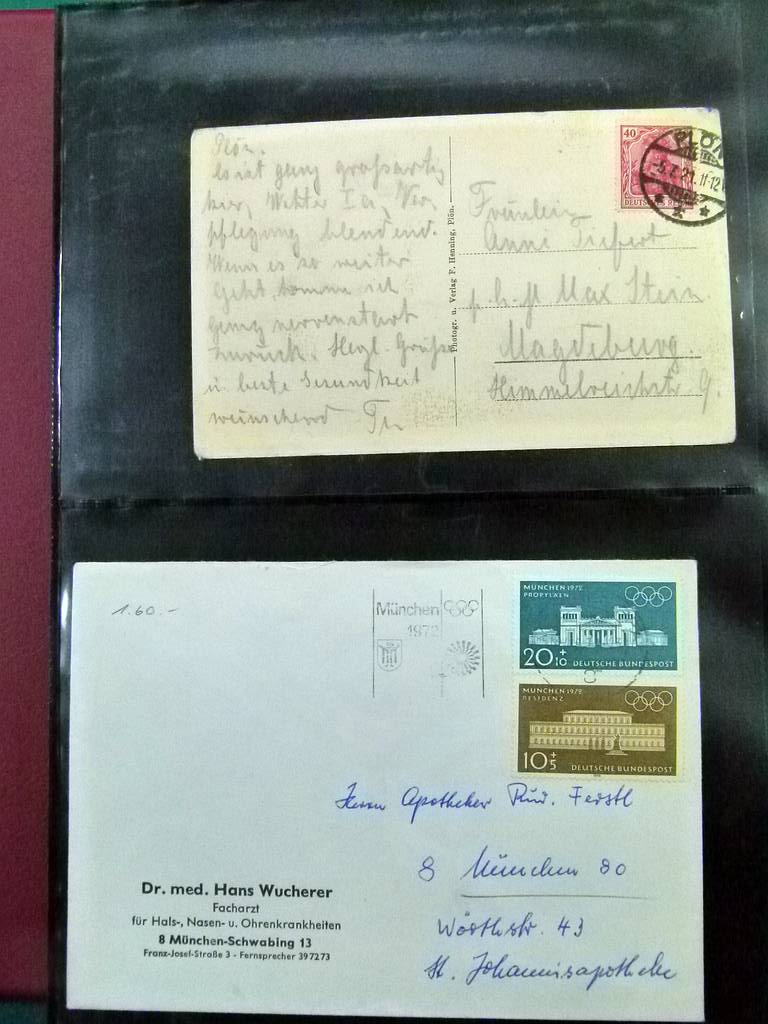 Plön.
Es ist ganz großartig
hier, Wetter Ia Ver
pflegung blendend.
Wenn es so weiter
geht, komme ich
ganz nervenstark
zurück. Herzl. Grüße
u. beste Gesundheit
wünschend
Photogr. u. Verlag F. Henning, Plön.
40
DEUTSCHES REICH
PLÖN
-5.7.21.11-12
Fräulein
Anni Tiefert
Max Stein
Magdeburg.
Himmelreichstr 9.
1.60.-
München
1972
MÜNCHEN 1972
PROPYLÄEN
20+10 DEUTSCHE BUNDESPOST
MÜNCHEN 1972
RESIDENZ
10+5 DEUTSCHE BUNDESPOST
Herrn Apotheker Rud. Ferstl
8 München 80
Wörthstr. 43
St. Johannisapotheke
Dr. med. Hans Wucherer
Facharzt
für Hals-, Nasen- u. Ohrenkrankheiten
8 München-Schwabing 13
Franz-Josef-Straße 3 - Fernsprecher 397273